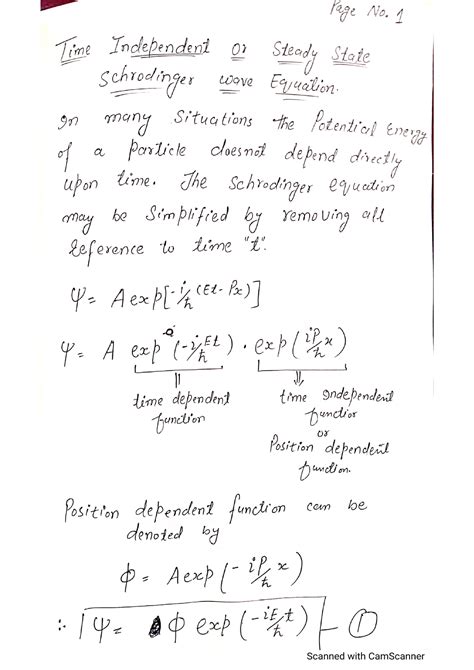 Page No. 1
Time Independent or Steady State
Schrodinger wave Equation.
In many Situations the Potential Energy
of a Particle doesnot depend directly
upon time. The Schrodinger equation
may be Simplified by removing all
reference to time "t".
Ψ = A exp[-i/ħ (Et - Px)]
Ψ = A exp (-i/ħ Et) . exp (iP/ħ x)
time dependent function
time Independent function
or
Position dependent function.
Position dependent function can be
denoted by
Φ = A exp (- iP/ħ x)
∴ Ψ = Φ exp (-iE/ħ t) - ①
Scanned with CamScanner